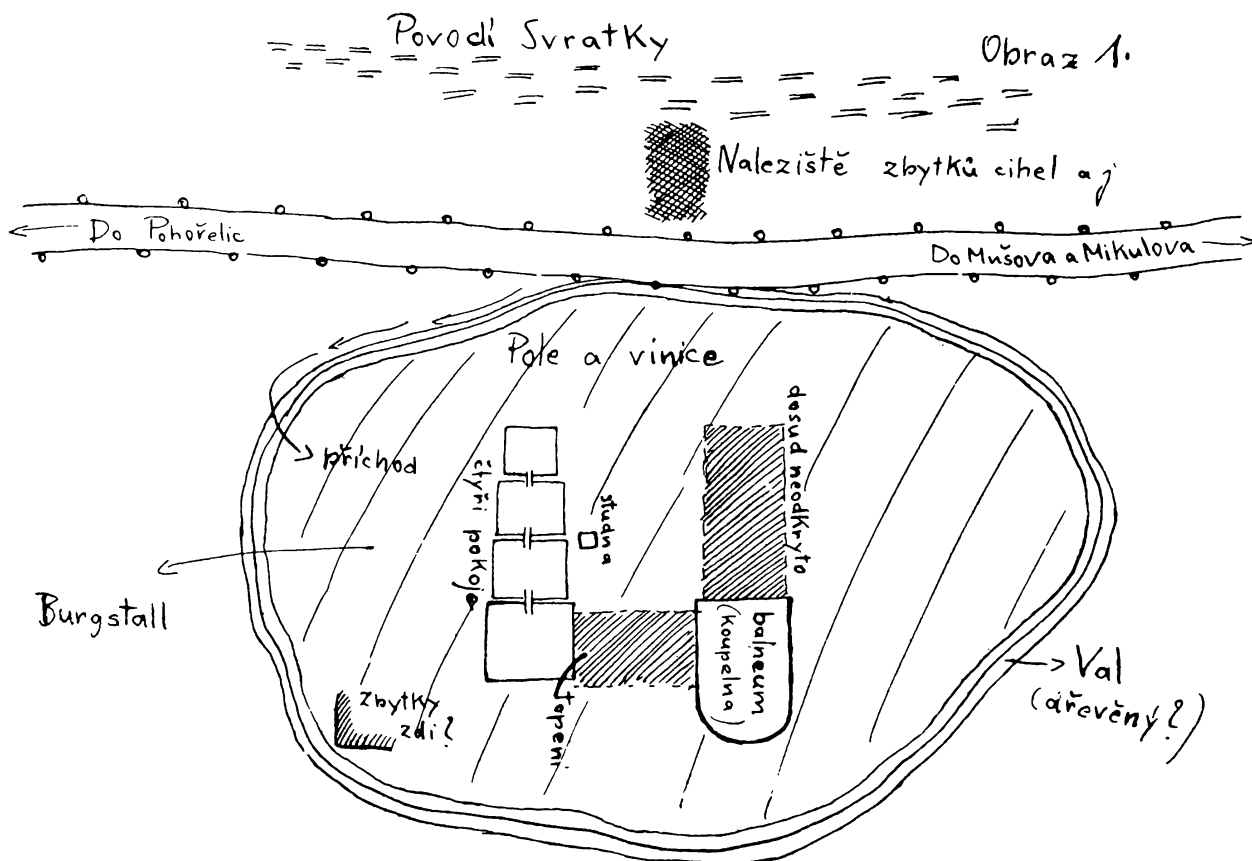 Povodí Svratky
Obraz 1.
Naleziště zbytků cihel a j
Do Pohořelic
Do Mušova a Mikulova
Pole a vinice
příchod
čtyři pokoj
studna
dosud neodkryto
Burgstall
balneum
(koupelna)
topení
zbytky
zdi?
Val
(dřevěný?)